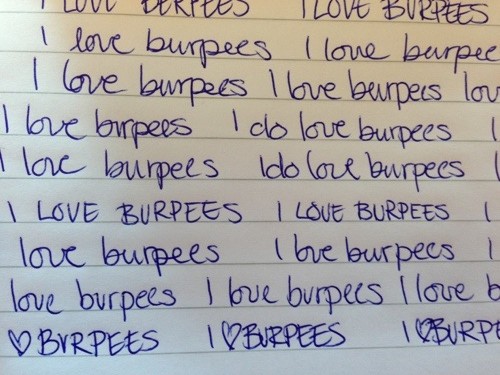 I LOVE BERPEES I LOVE BURPEES
I love burpees I love burpee
I love burpees I love burpees lov
I love burpees I do love burpees I
I love burpees I do love burpees I
I LOVE BURPEES I LOVE BURPEES I
love burpees I love burpees I
love burpees I love burpees I love b
♡ BURPEES I ♡ BURPEES I ♡ BURPE